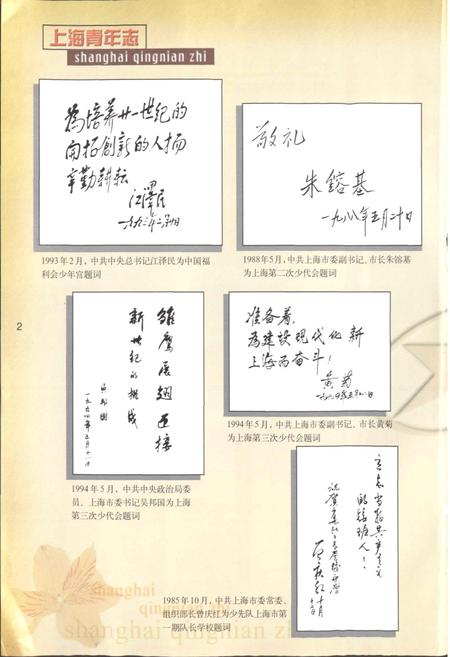 上海青年志
shanghai qingnian zhi
为培养廿一世纪的
开拓创新的人才而
辛勤耕耘
江泽民
1993年2月，中共中央总书记江泽民为中国福
利会少年宫题词
敬礼
朱镕基
一九八八年五月二十日
1988年5月，中共上海市委副书记、市长朱镕基
为上海第二次少代会题词
2
雏鹰展翅迎接
新世纪的挑战
吴邦国
一九九四年五月十八日
1994年5月，中共中央政治局委
员、上海市委书记吴邦国为上海
第三次少代会题词
准备着，
为建设现代化新
上海而奋斗！
黄菊
1994年5月，中共上海市委副书记、市长黄菊
为上海第三次少代会题词
立志当好共产主义
的接班人！
1985年10月，中共上海市委常委、
组织部长曾庆红为少先队上海市第
一期队长学校题词
shanghai
qingnian zhi
shanghai qingnian zhi